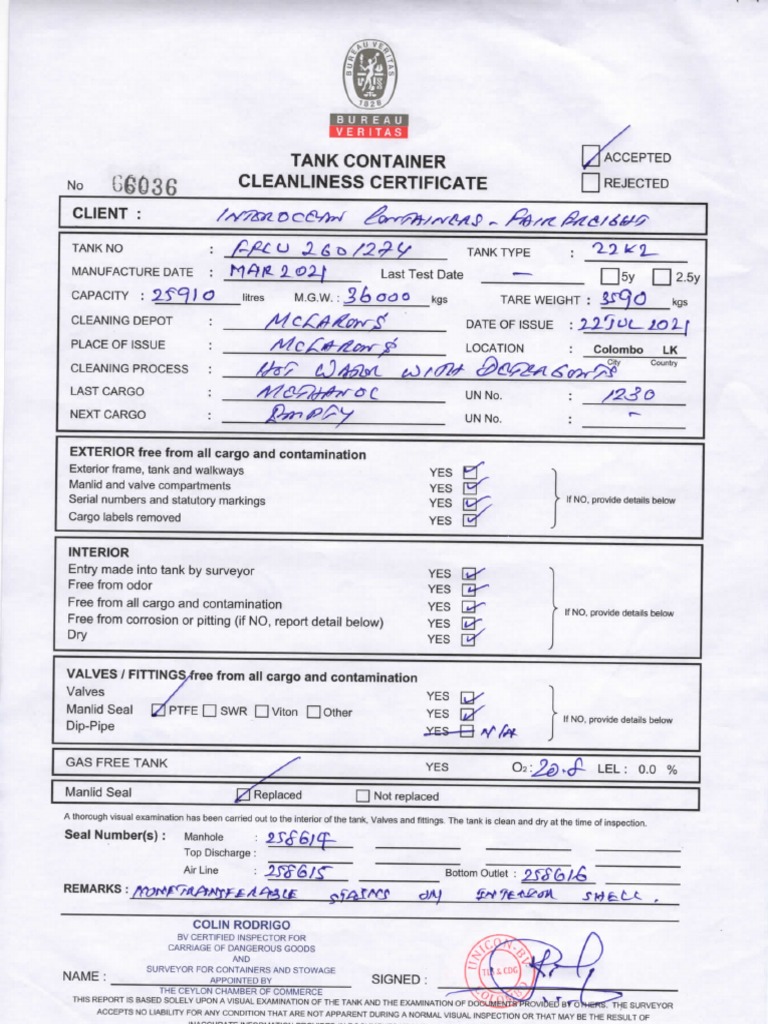 BUREAU VERITAS
1828
BUREAU
VERITAS
TANK CONTAINER
CLEANLINESS CERTIFICATE
ACCEPTED
REJECTED
No 66036
CLIENT : INTEROCEAN CONTAINERS - FAIRFREIGHT
TANK NO : FFCU 2601274 TANK TYPE : 22K2
MANUFACTURE DATE : MAR 2021 Last Test Date - 5y 2.5y
CAPACITY : 25910 litres M.G.W. : 36000 kgs TARE WEIGHT : 3590 kgs
CLEANING DEPOT : MCLARONS DATE OF ISSUE : 22JUL2021
PLACE OF ISSUE : MCLARONS LOCATION : Colombo LK
City Country
CLEANING PROCESS : HOT WATER WITH DETERGENTS
LAST CARGO : METHANOL UN No. : 1230
NEXT CARGO : EMPTY UN No. : -
EXTERIOR free from all cargo and contamination
Exterior frame, tank and walkways YES
Manlid and valve compartments YES
Serial numbers and statutory markings YES If NO, provide details below
Cargo labels removed YES
INTERIOR
Entry made into tank by surveyor YES
Free from odor YES
Free from all cargo and contamination YES If NO, provide details below
Free from corrosion or pitting (if NO, report detail below) YES
Dry YES
VALVES / FITTINGS free from all cargo and contamination
Valves YES
Manlid Seal PTFE SWR Viton Other YES If NO, provide details below
Dip-Pipe YES N/A
GAS FREE TANK YES O2: 20.8 LEL : 0.0 %
Manlid Seal Replaced Not replaced
A thorough visual examination has been carried out to the interior of the tank, Valves and fittings. The tank is clean and dry at the time of inspection.
Seal Number(s) : Manhole : 258614
Top Discharge :
Air Line : 258615 Bottom Outlet : 258616
REMARKS : NONETRANSFERABLE STAINS ON INTERIOR SHELL.
COLIN RODRIGO
BV CERTIFIED INSPECTOR FOR
CARRIAGE OF DANGEROUS GOODS
AND
SURVEYOR FOR CONTAINERS AND STOWAGE
APPOINTED BY
THE CEYLON CHAMBER OF COMMERCE
NAME : SIGNED :
TLR & CDG
THIS REPORT IS BASED SOLELY UPON A VISUAL EXAMINATION OF THE TANK AND THE EXAMINATION OF DOCUMENTS PROVIDED BY OTHERS. THE SURVEYOR
ACCEPTS NO LIABILITY FOR ANY CONDITION THAT ARE NOT APPARENT DURING A NORMAL VISUAL INSPECTION OR THAT MAY BE THE RESULT OF